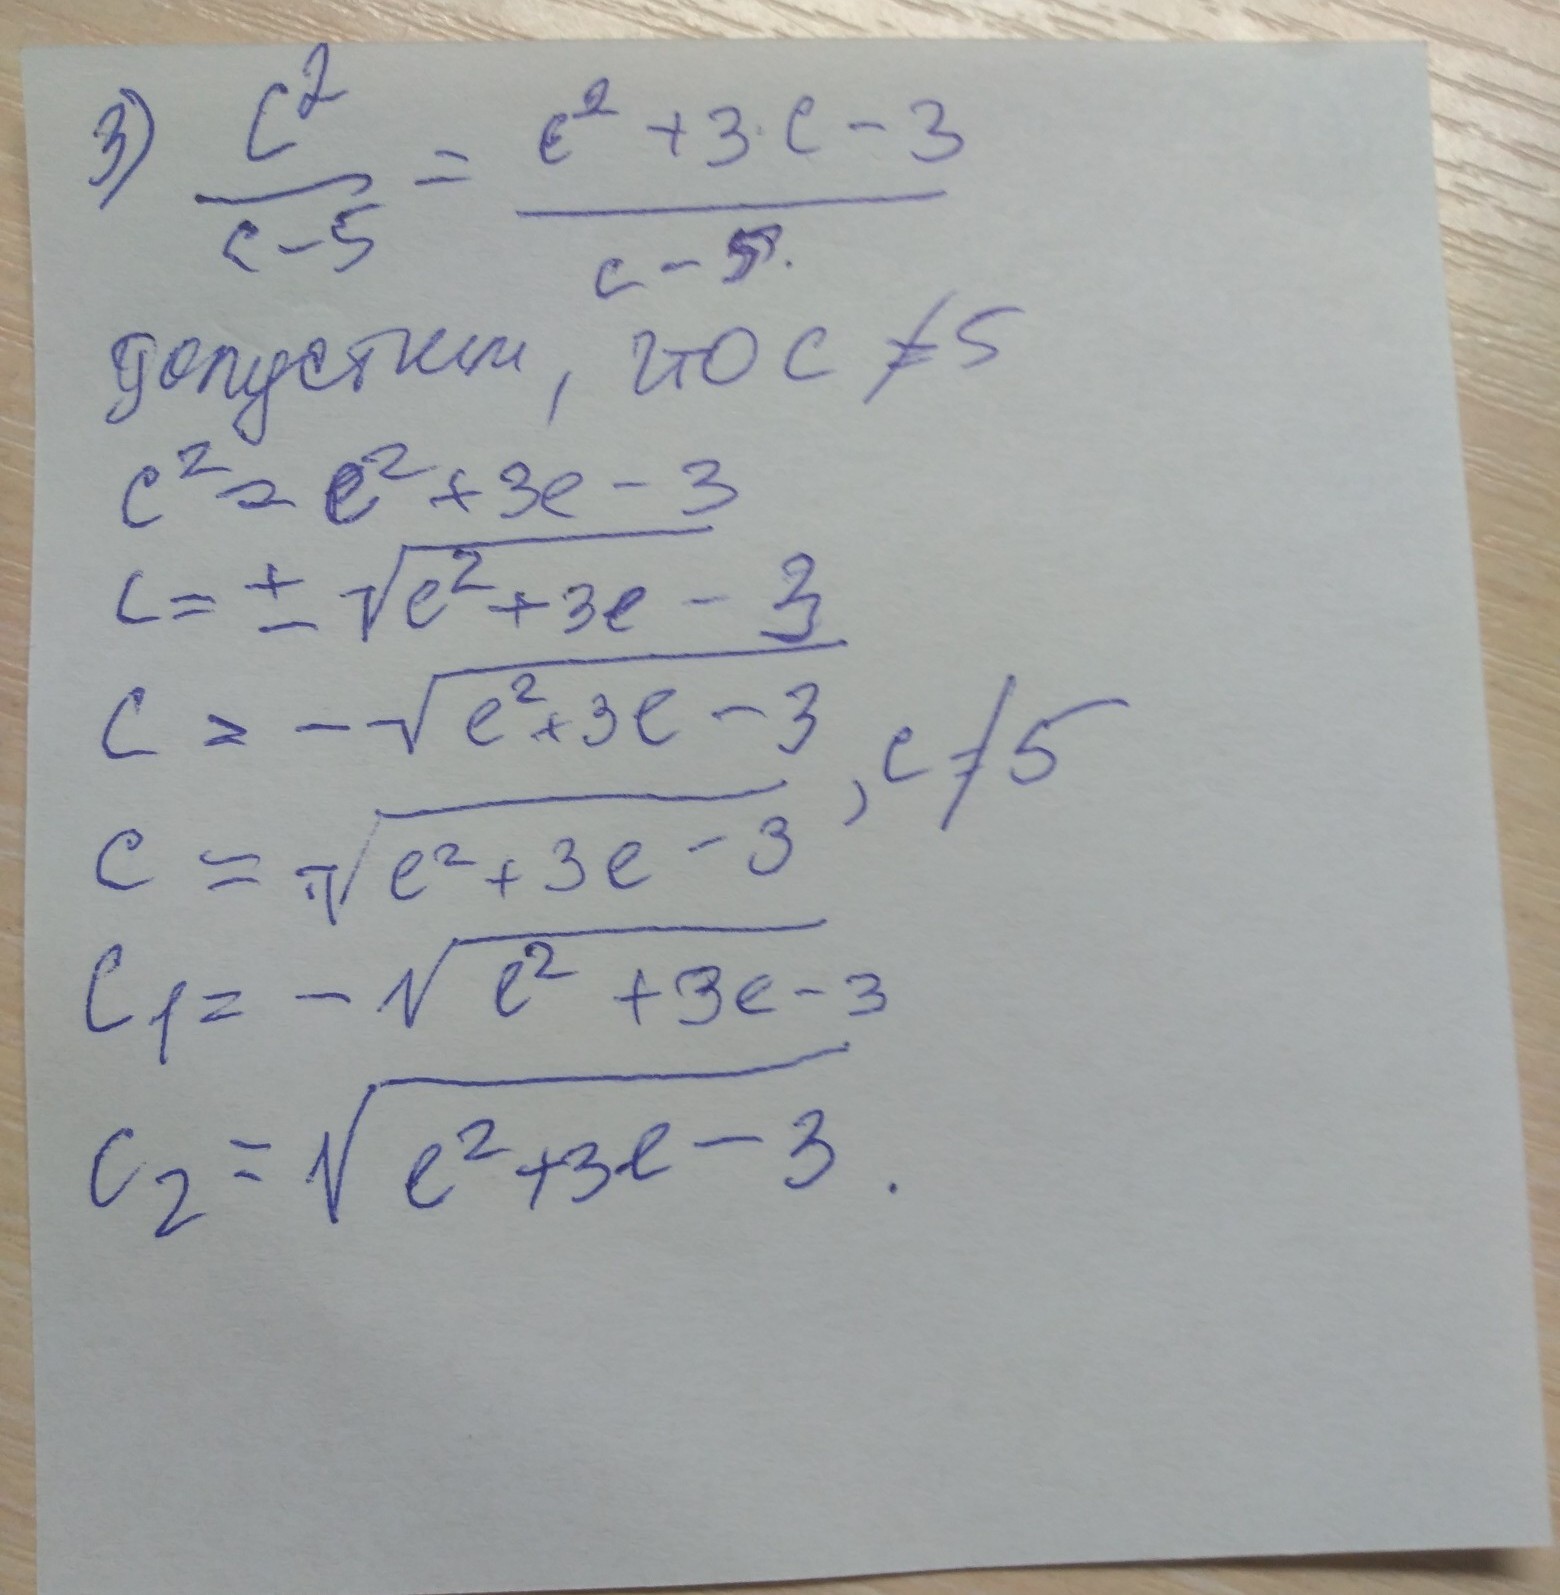 3) c²/(c-5) = (e²+3·e-3)/(c-5).
допустим, что c ≠ 5
c² = e²+3e-3
c = ±√(e²+3e-3)
c = -√(e²+3e-3)
c = √(e²+3e-3), c ≠ 5
c₁ = -√(e²+3e-3)
c₂ = √(e²+3e-3).